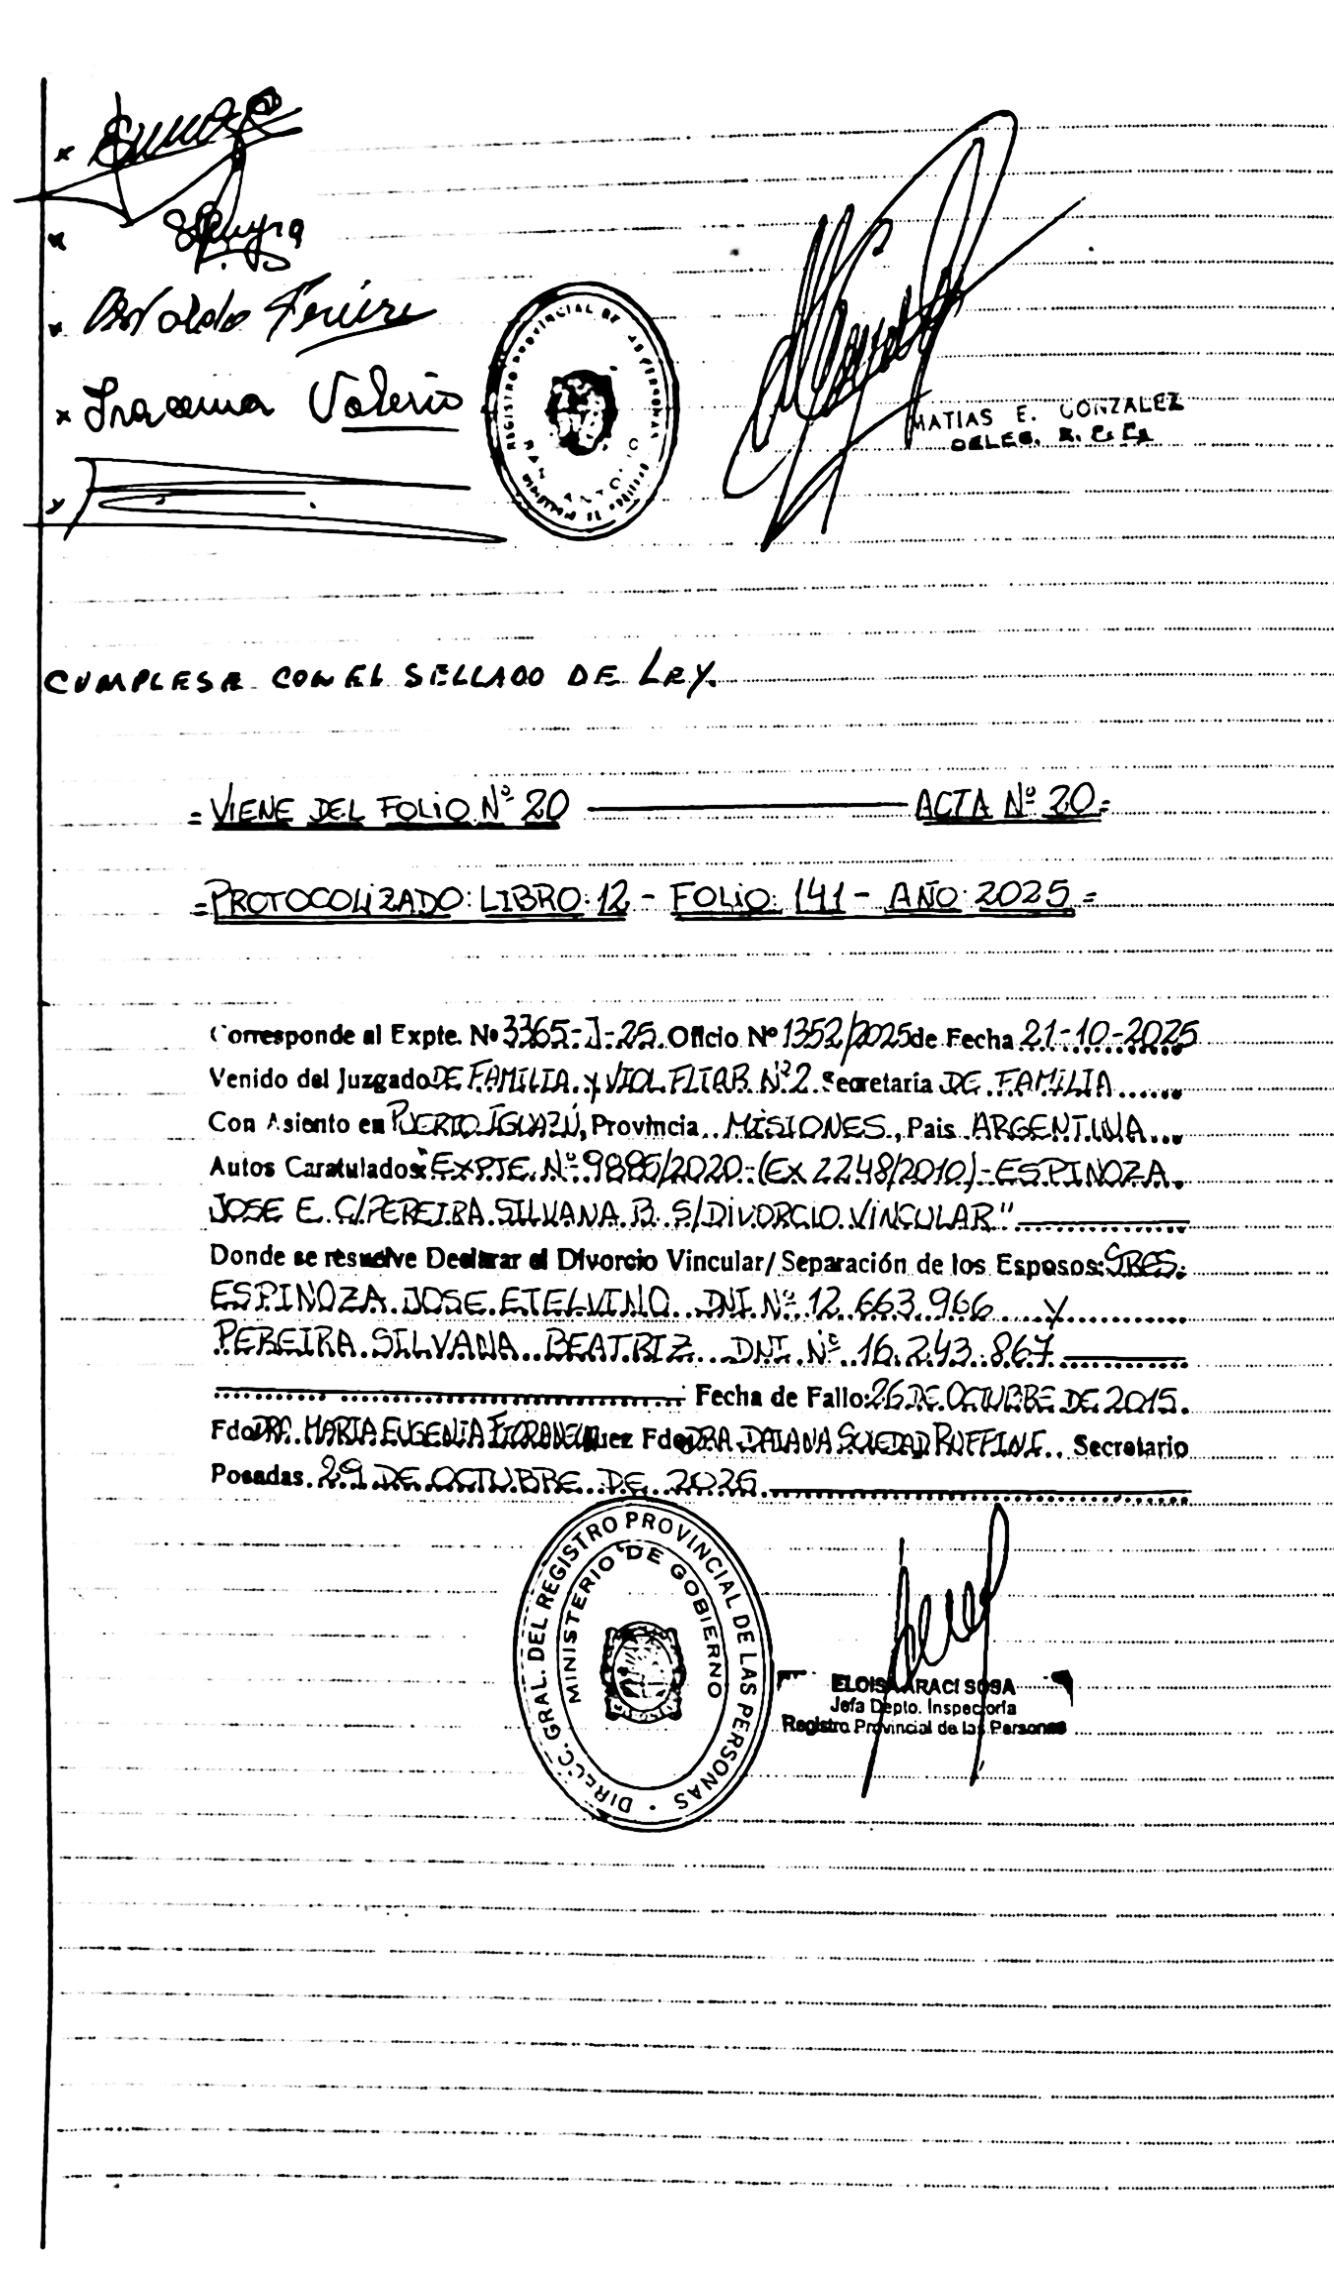 Osvaldo Ferreira
Iracema Valerio
REGISTRO PROVINCIAL DE LAS PERSONAS
SAN ANTONIO
MATIAS E. GONZALEZ
DELEG. R. C. C.
CUMPLESE CON EL SELLADO DE LEY.
= VIENE DEL FOLIO Nº 20 ACTA Nº 20 =
= PROTOCOLIZADO: LIBRO: 12 - FOLIO: 141 - AÑO: 2025 =
Corresponde al Expte. Nº 3365-J-25. Oficio Nº 1352/2025 de Fecha 21-10-2025
Venido del Juzgado DE FAMILIA. y VIOL FLIAR Nº 2. Secretaria DE FAMILIA
Con Asiento en PUERTO IGUAZÚ, Provincia MISIONES, Pais ARGENTINA
Autos Caratulados: "EXPTE. Nº 9886/2020-(EX 2248/2010)-ESPINOZA
JOSE E. C/PEREIRA SILVANA B. S/DIVORCIO VINCULAR"
Donde se resuelve Declarar el Divorcio Vincular/ Separación de los Esposos: SRES.
ESPINOZA JOSE ETELVINO DNI Nº 12.663.966 y
PEREIRA SILVANA BEATRIZ DNI Nº 16.243.867
Fecha de Fallo: 26 DE OCTUBRE DE 2015.
Fdo DRA. MARIA EUGENIA Juez Fdo DRA DAIANA SOLEDAD RUFFINI Secretario
Posadas. 29 DE OCTUBRE DE 2025
DIRECC. GRAL. DEL REGISTRO PROVINCIAL DE LAS PERSONAS
MINISTERIO DE GOBIERNO
ELOISA ARACI SOSA
Jefa Depto. Inspectoria
Registro Provincial de las Personas